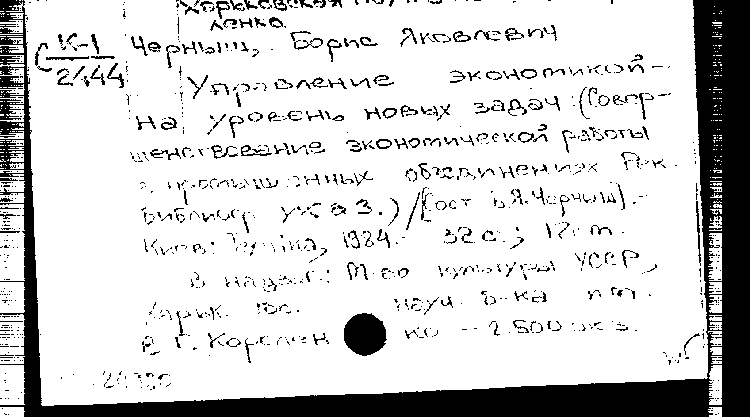 Харьковская
ленко
К-1
2444
Черныш, Борис Яковлевич
Управление экономикой -
на уровень новых задач : (Совер-
шенствование экономической работы
в промышленных объединениях Рек.
библиогр указ.) / [Сост Б.Я. Черныш]. -
Киев: Техніка, 1984. - 32 с.; 17 см.
В надзаг.: М-во культуры УССР,
Харьк. гос. науч. б-ка им.
В Г. Королен ко - 2.500 экз.